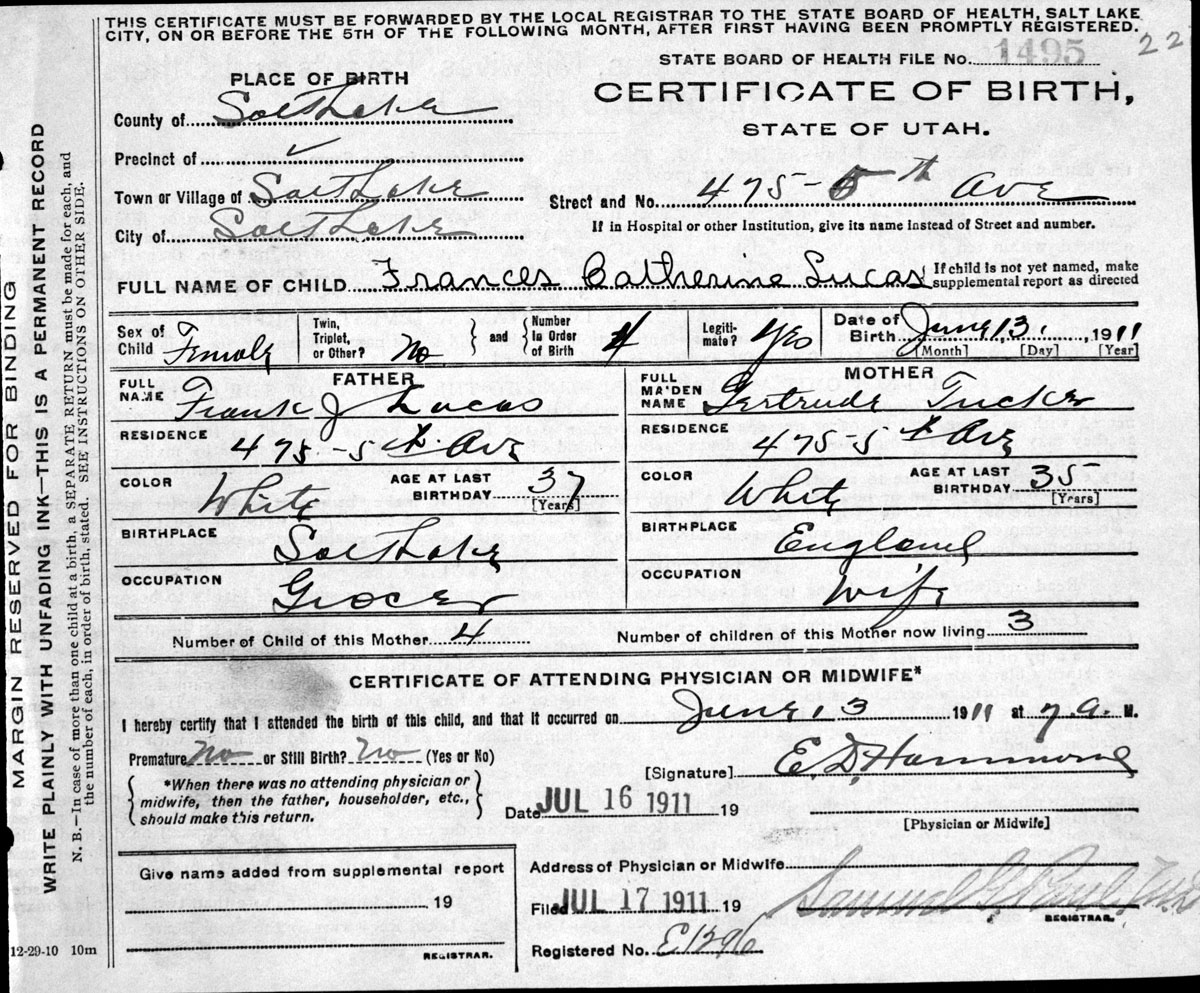 THIS CERTIFICATE MUST BE FORWARDED BY THE LOCAL REGISTRAR TO THE STATE BOARD OF HEALTH, SALT LAKE
CITY, ON OR BEFORE THE 5TH OF THE FOLLOWING MONTH, AFTER FIRST HAVING BEEN PROMPTLY REGISTERED.
22
MARGIN RESERVED FOR BINDING
WRITE PLAINLY WITH UNFADING INK—THIS IS A PERMANENT RECORD
N. B.—In case of more than one child at a birth, a SEPARATE RETURN must be made for each, and
the number of each, in order of birth, stated. SEE INSTRUCTIONS ON OTHER SIDE.
STATE BOARD OF HEALTH FILE No. 1495
PLACE OF BIRTH
CERTIFICATE OF BIRTH,
STATE OF UTAH.
County of Salt Lake
Precinct of ✓
Town or Village of Salt Lake
Street and No. 475-5th Ave
City of Salt Lake
If in Hospital or other Institution, give its name instead of Street and number.
FULL NAME OF CHILD Frances Catherine Lucas { If child is not yet named, make
supplemental report as directed
Sex of Child Female
Twin, Triplet, or Other? No } and { Number in Order of Birth 4
Legiti-mate? Yes
Date of Birth June 13, 1911
[Month] [Day] [Year]
FATHER
FULL NAME Frank J Lucas
RESIDENCE 475-5th Ave
COLOR White AGE AT LAST BIRTHDAY 37 [Years]
BIRTHPLACE Salt Lake
OCCUPATION Grocer
MOTHER
FULL MAIDEN NAME Gertrude Tucker
RESIDENCE 475-5th Ave
COLOR White AGE AT LAST BIRTHDAY 35 (Years)
BIRTHPLACE England
OCCUPATION Wife
Number of Child of this Mother 4 Number of children of this Mother now living 3
CERTIFICATE OF ATTENDING PHYSICIAN OR MIDWIFE*
I hereby certify that I attended the birth of this child, and that it occurred on June 13 1911 at 7 a. M.
Premature No or Still Birth? No (Yes or No)
{ *When there was no attending physician or
midwife, then the father, householder, etc.,
should make this return. }
[Signature] E. D. Hammond
Date JUL 16 1911 19
[Physician or Midwife]
Give name added from supplemental report
19
REGISTRAR.
Address of Physician or Midwife
Filed JUL 17 1911 19 Samuel G. Paul, M.D.
REGISTRAR.
Registered No. E1296
12-29-10 10m